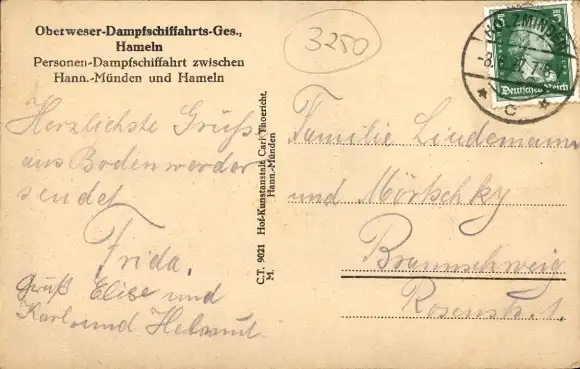 Oberweser-Dampfschiffahrts-Ges.,
Hameln
Personen-Dampfschiffahrt zwischen
Hann.-Münden und Hameln
Herzlichste Grüße
aus Bodenwerder
sendet
Frida.
Gruß Elise und
Karl und Helmut.
C.T. 9021 Hof-Kunstanstalt Carl Thoericht,
M. Hann.-Münden
3250
HOLZMINDEN
5 5
Deutsches Reich
C
Familie Lindemann
und Mörtschky
Braunschweig
Rosenstr. 1.